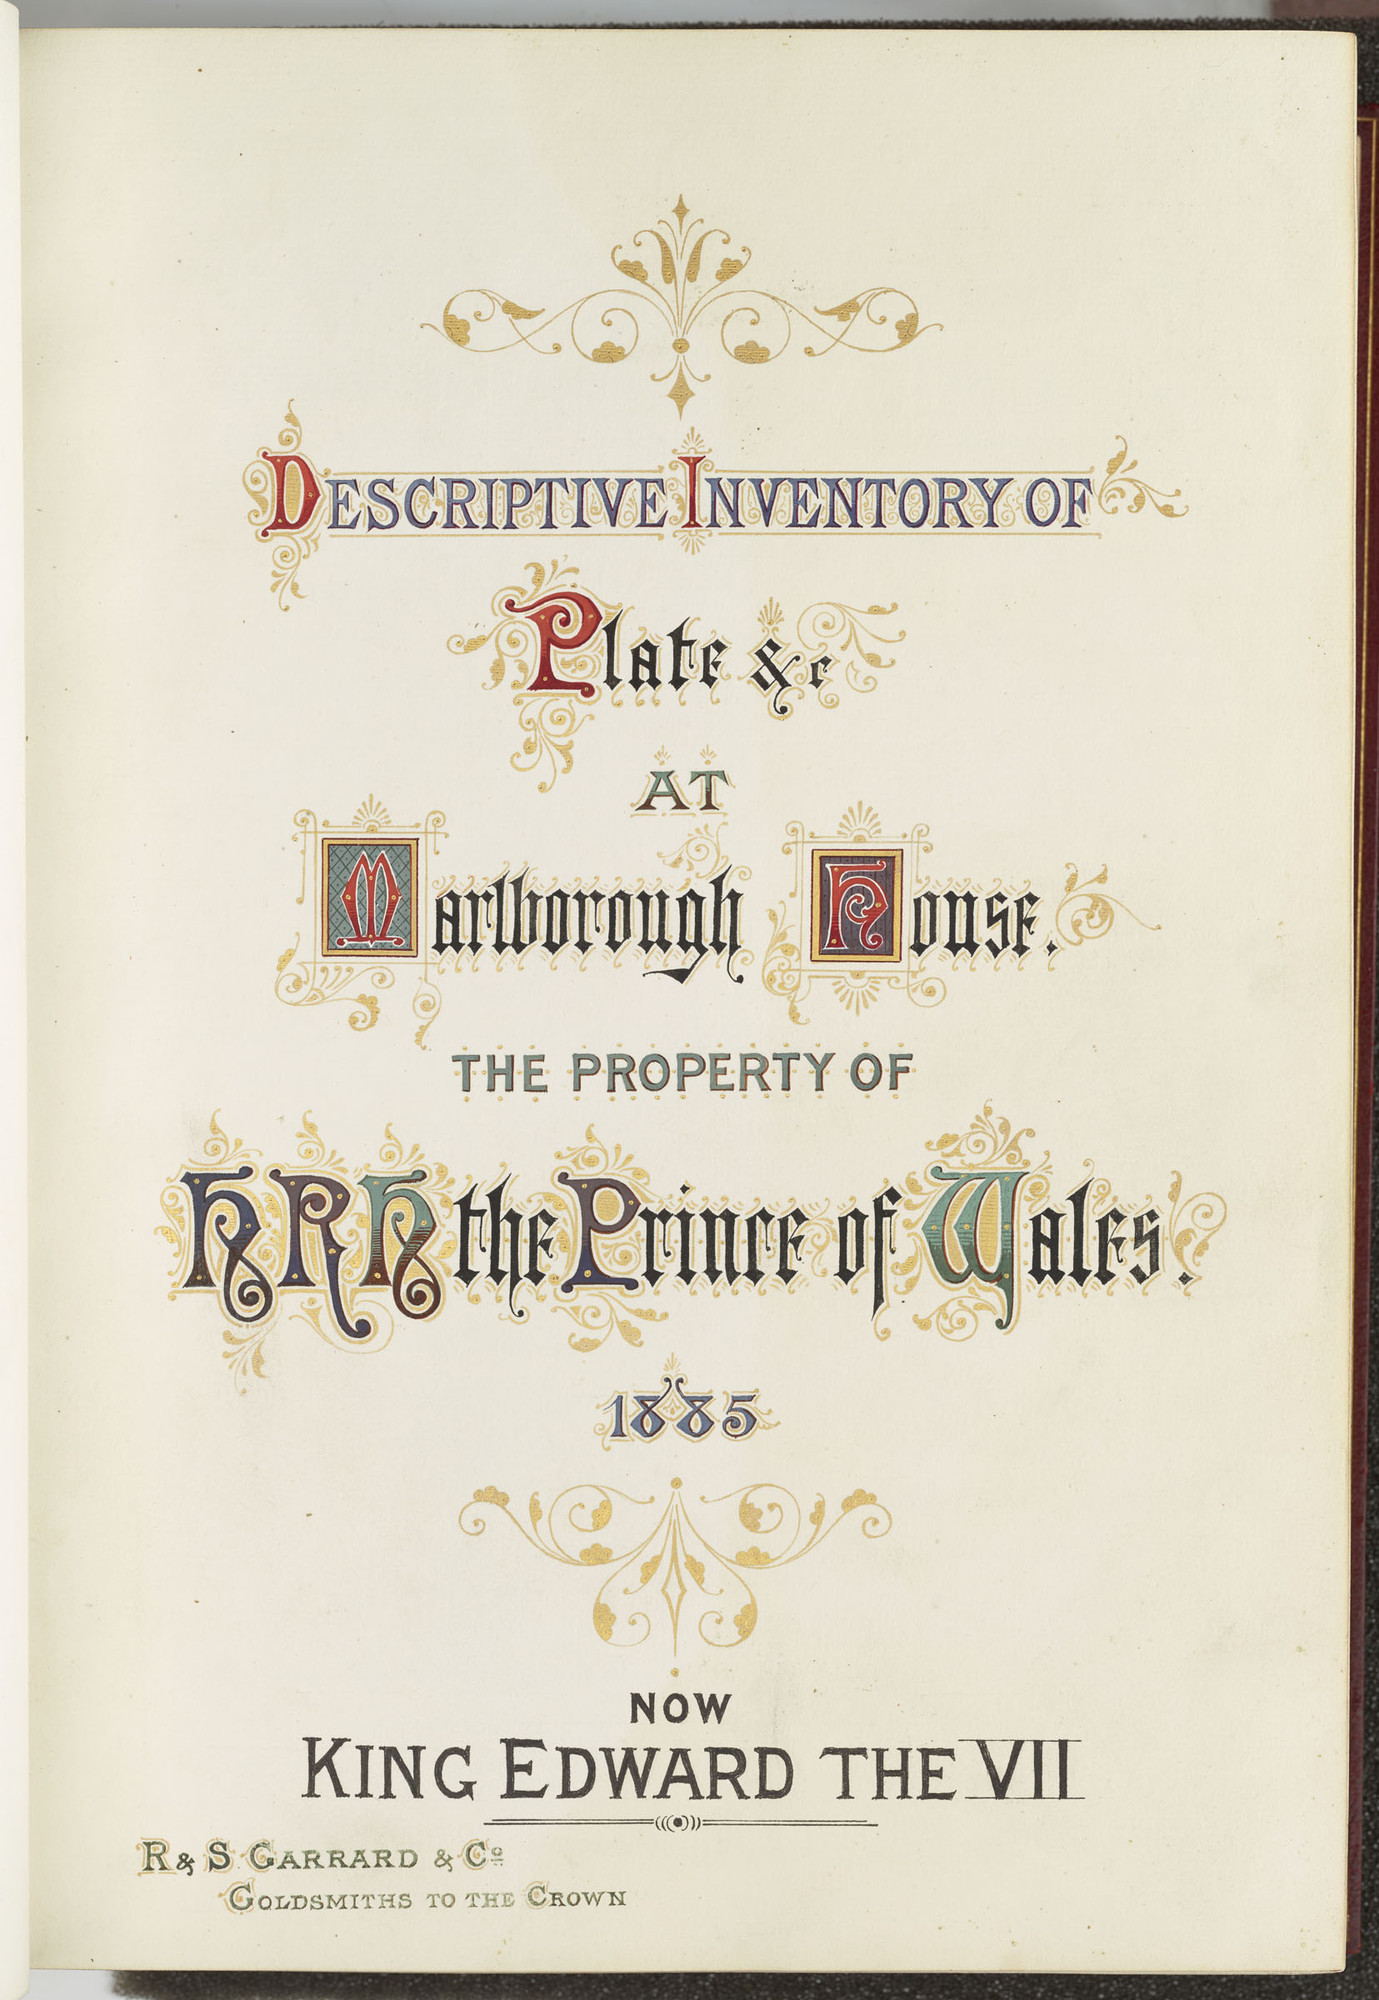 DESCRIPTIVE INVENTORY OF
Plate &c
AT
Marlborough House.
THE PROPERTY OF
HRH the Prince of Wales.
1885
NOW
KING EDWARD THE VII
R & S GARRARD & Co
GOLDSMITHS TO THE CROWN